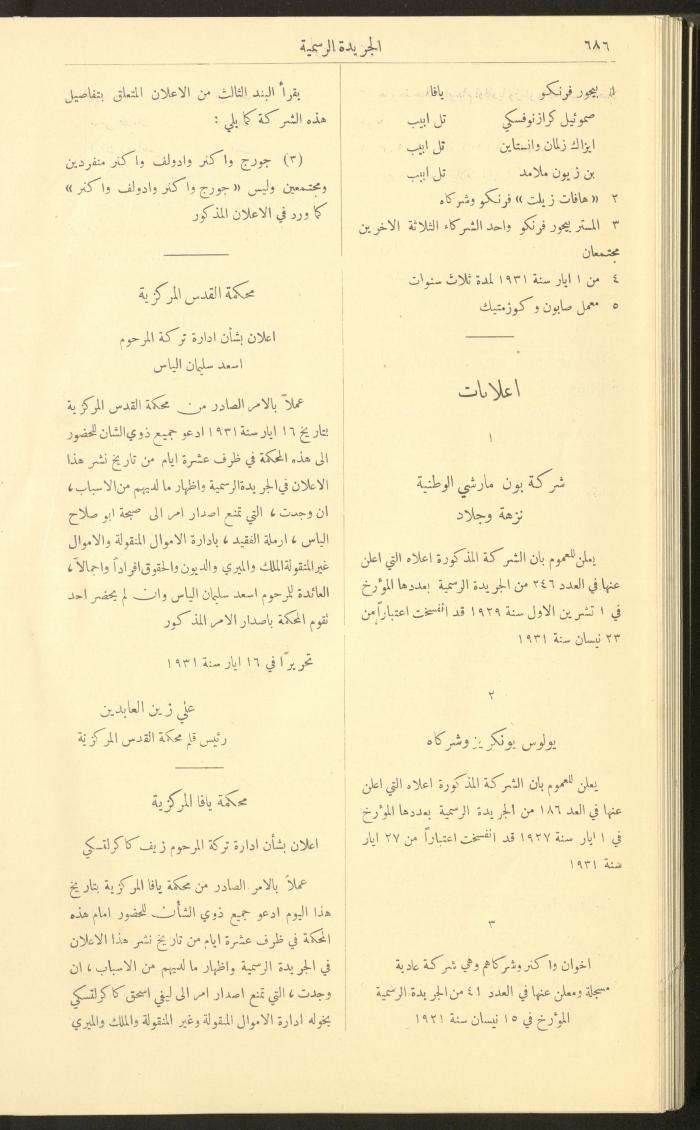 ٦٨٦
الجريدة الرسمية
١ بيجور فرنكو يافا
صموئيل كرازنوفسكي تل ابيب
ايزاك زلمان وانستاين تل ابيب
بن زيون ملامد تل ابيب
٢ « هافات زيلت » فرنكو وشركاه
٣ المستر بيجور فرنكو واحد الشركاء الثلاثة الاخرين
مجتمعان
٤ من ١ ايار سنة ١٩٣١ لمدة ثلاث سنوات
٥ معمل صابون وكوزمتيك
اعلانات
١
شركة بون مارشي الوطنية
نزهة وجلاد
يعلن للعموم بان الشركة المذكورة اعلاه التي اعلن
عنها في العدد ٢٤٦ من الجريدة الرسمية بعددها المؤرخ
في ١ تشرين الاول سنة ١٩٢٩ قد انفسخت اعتباراً من
٢٣ نيسان سنة ١٩٣١
٢
يولوس بونكريز وشركاه
يعلن للعموم بان الشركة المذكورة اعلاه التي اعلن
عنها في العد ١٨٦ من الجريدة الرسمية بعددها المؤرخ
في ١ ايار سنة ١٩٢٧ قد انفسخت اعتباراً من ٢٧ ايار
سنة ١٩٣١
٣
اخوان واكنر وشركاهم وهي شركة عادية
مسجلة ومعلن عنها في العدد ٤١ من الجريدة الرسمية
المؤرخ في ١٥ نيسان سنة ١٩٢١
يقرأ البند الثالث من الاعلان المتعلق بتفاصيل
هذه الشركة كما يلي :
(٣) جورج واكنر وادولف واكنر منفردين
ومجتمعين وليس « جورج واكنر وادولف واكنر »
كما ورد في الاعلان المذكور
محكمة القدس المركزية
اعلان بشأن ادارة تركة المرحوم
اسعد سليمان الياس
عملاً بالامر الصادر من محكمة القدس المركزية
بتاريخ ١٦ ايار سنة ١٩٣١ ادعو جميع ذوي الشان للحضور
الى هذه المحكمة في ظرف عشرة ايام من تاريخ نشر هذا
الاعلان في الجريدة الرسمية واظهار ما لديهم من الاسباب ،
ان وجدت ، التي تمنع اصدار امر الى صبحة ابو صلاح
الياس ، ارملة الفقيد ، بادارة الاموال المنقولة والاموال
غير المنقولة الملك والميري والديون والحقوق افراداً واجمالاً ،
العائدة للمرحوم اسعد سليمان الياس وان لم يحضر احد
تقوم المحكمة باصدار الامر المذكور
تحريراً في ١٦ ايار سنة ١٩٣١
علي زين العابدين
رئيس قلم محكمة القدس المركزية
محكمة يافا المركزية
اعلان بشأن ادارة تركة المرحوم زيف كاكرلتسكي
عملاً بالامر الصادر من محكمة يافا المركزية بتاريخ
هذا اليوم ادعو جميع ذوي الشأن للحضور امام هذه
المحكمة في ظرف عشرة ايام من تاريخ نشر هذا الاعلان
في الجريدة الرسمية واظهار ما لديهم من الاسباب ، ان
وجدت ، التي تمنع اصدار امر الى ليفي اسحق كاكرلتسكي
يخوله ادارة الاموال المنقولة وغير المنقولة والملك والميري